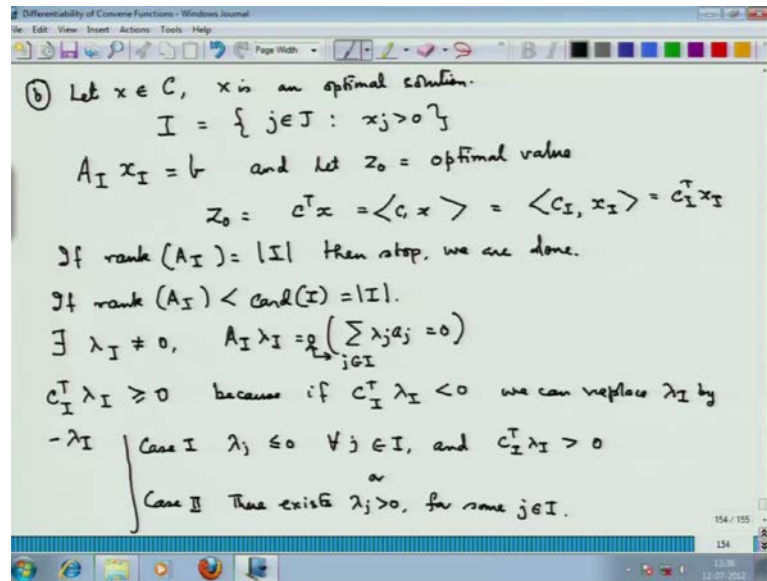 Differentiability of Convene Functions - Windows Journal
File Edit View Insert Actions Tools Help
Page Width
(b) Let x ∈ C, x is an optimal solution.
I = { j∈J : xj>0 }
A_I x_I = b and let z₀ = optimal value
z₀ = c^T x = <c, x> = <c_I, x_I> = c_I^T x_I
If rank (A_I) = |I| then stop, we are done.
If rank (A_I) < Card(I) = |I|.
∃ λ_I ≠ 0, A_I λ_I = 0 ( Σ_{j∈I} λj aj = 0 )
c_I^T λ_I ≥ 0 because if c_I^T λ_I < 0 we can replace λ_I by
-λ_I Case I λj ≤ 0 ∀ j ∈ I, and c_I^T λ_I > 0
or
Case II There exists λj > 0, for some j∈I.
154 / 155
154
13:38
12-07-2012